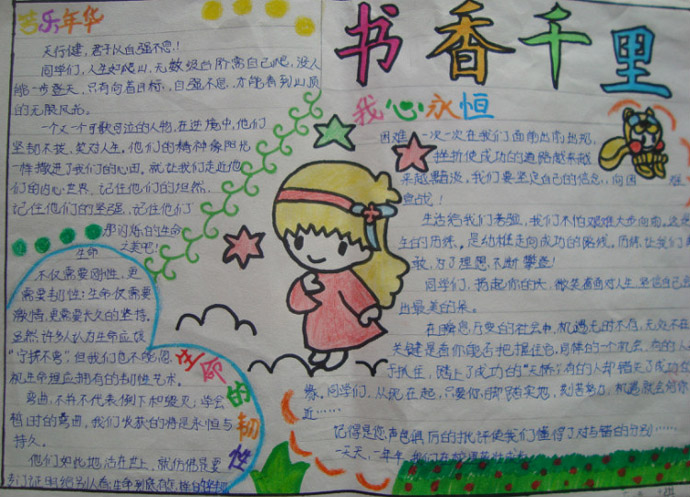 乐年华
天行健,君子以自强不息!
同学们,人生如爬山,无数级台阶需自己爬,没人
能一步登天,只有向着目标,自强不息,才能看到山顶
的无限风光。
一个又一个可歌可泣的人物,在逆境中,他们
坚韧不拔,笑对人生,他们的精神像阳光
一样撒进了我们的心田,就让我们走近他
们的内心世界,记住他们的坦然,
记住他们的坚强,记住他们
那闪烁的生命
之美吧!
生命
不仅需要刚性,更
需要韧性;生命仅需要
激情,更需要长久的坚持。
虽然许多人认为生命应该
“宁折不弯”,但我们也不能忽
视生命理应拥有的韧性艺术。
弯曲,不并不代表倒下和毁灭;学会
暂时的弯曲,我们收获的将是永恒与
持久。
他们如此地活在世上,就仿佛是要
生命的韧性
书香千里
我心永恒
困难一次一次在我们面前出现,
挫折使成功的道路越来越
来越黯淡,我们要坚定自己的信念,向困难
宣战!
生活给我们考验,我们不怕艰难大步向前,
生的历练,是幼稚走向成功的路线,历练让我们
敢,为了理想,不断攀登!
同学们,扬起你的头,微笑着面对人生,坚信自己
出最美的
在瞬息万变的社会中,机遇无时不在,无处不在
关键是看你能否把握住它,同样的一个机会,有的人
于抓住,踏上了成功的“天桥”;有的人却错失了成功的
缘。同学们,从现在起,只要你脚踏实地,刻苦努力,机遇就会向你
近……
记得是您,声色俱厉的批评使我们懂得了对与错的分别……
一天天,一年年,我们在